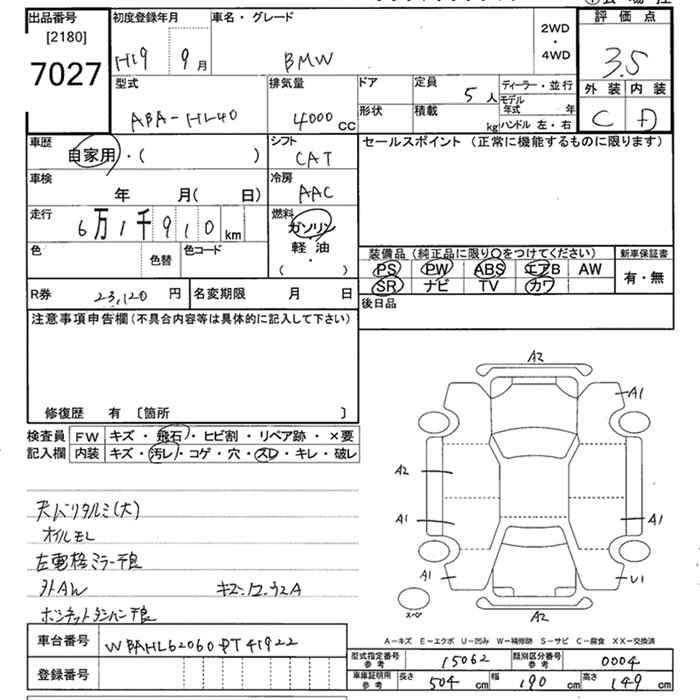 出品番号 初度登録年月 車名・グレード 2WD・4WD 評価点
[2180]
7027 H19 9月 BMW 3.5
型式 排気量 ドア 定員 5人 ディーラー・並行 外装 内装
ABA-HL40 4000 CC 形状 積載 kg モデル年式 年 C D
ハンドル 左・右
車歴 自家用・( ) シフト CAT セールスポイント (正常に機能するものに限ります)
車検 年 月( 日) 冷房 AAC
走行 6万1千910km 燃料 ガソリン
軽・油
( ・ )
色 色替 色コード 装備品 (純正品に限り○をつけてください) 新車保証書
PS PW ABS エアB AW 有・無
SR ナビ TV カワ
R券 23,120円 名変期限 月 日 後日品
注意事項申告欄 (不具合内容等は具体的に記入して下さい)
修復歴 有 〔箇所 〕
検査員 FW キズ・飛石・ヒビ割・リペア跡・×要
記入欄 内装 キズ・汚レ・コゲ・穴・スレ・キレ・破レ
A2
A1
A2
A1 A1
A1 U1
A2
スペ
天バリタルミ(大)
オイルモレ
左電格ミラー不良
外AW
ボンネットダンパー不良
A-キズ E-エクボ U-凹み W-補修跡 S-サビ C-腐食 XX-交換済
車台番号 WBAHL62060DT41922
登録番号
型式指定番号 参考 15062 類別区分番号 参考 0004
車庫証明用 参考 長さ 504cm 幅 190cm 高さ 149cm